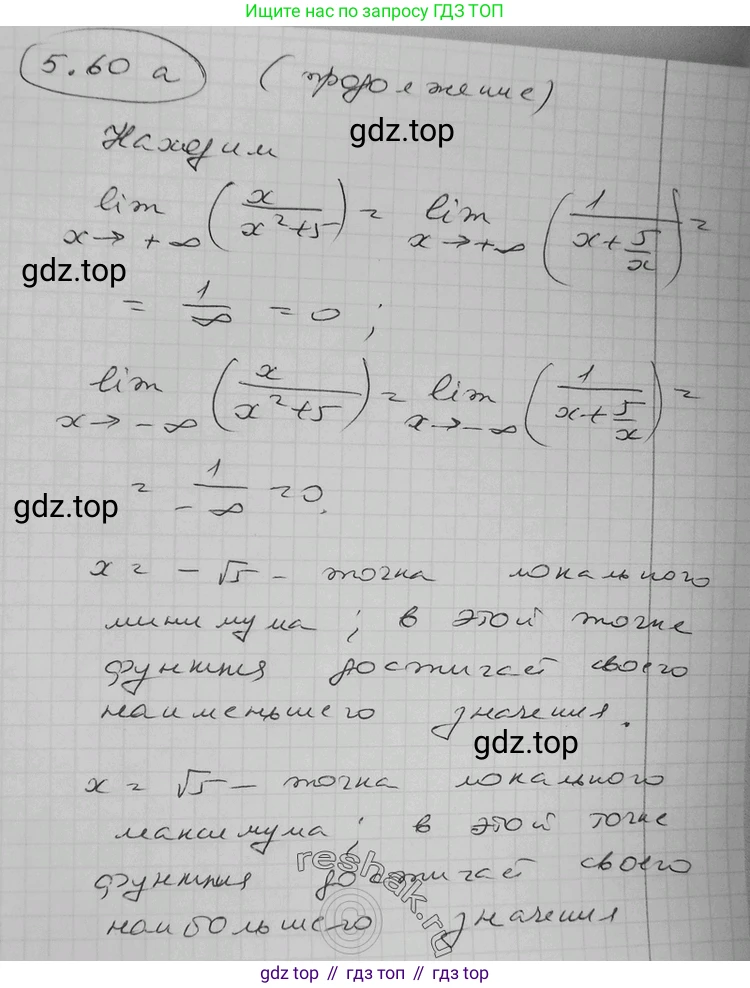 Ищите нас по запросу ГДЗ ТОП
5.60 а (продолжение)
gdz.top
Находим
lim x→+∞ (x/(x²+5)) = lim x→+∞ (1/(x+5/x)) =
gdz.top
= 1/∞ = 0 ;
lim x→-∞ (x/(x²+5)) = lim x→-∞ (1/(x+5/x)) =
gdz.top
= 1/-∞ = 0.
x = -√5 - точка локального
минимума ; в этой точке
функция достигает своего
наименьшего значения.
gdz.top
x = √5 - точка локального
максимума ; в этой точке
функция достигает своего
reshak.ru
наибольшего значения
gdz top // гдз топ // gdz top